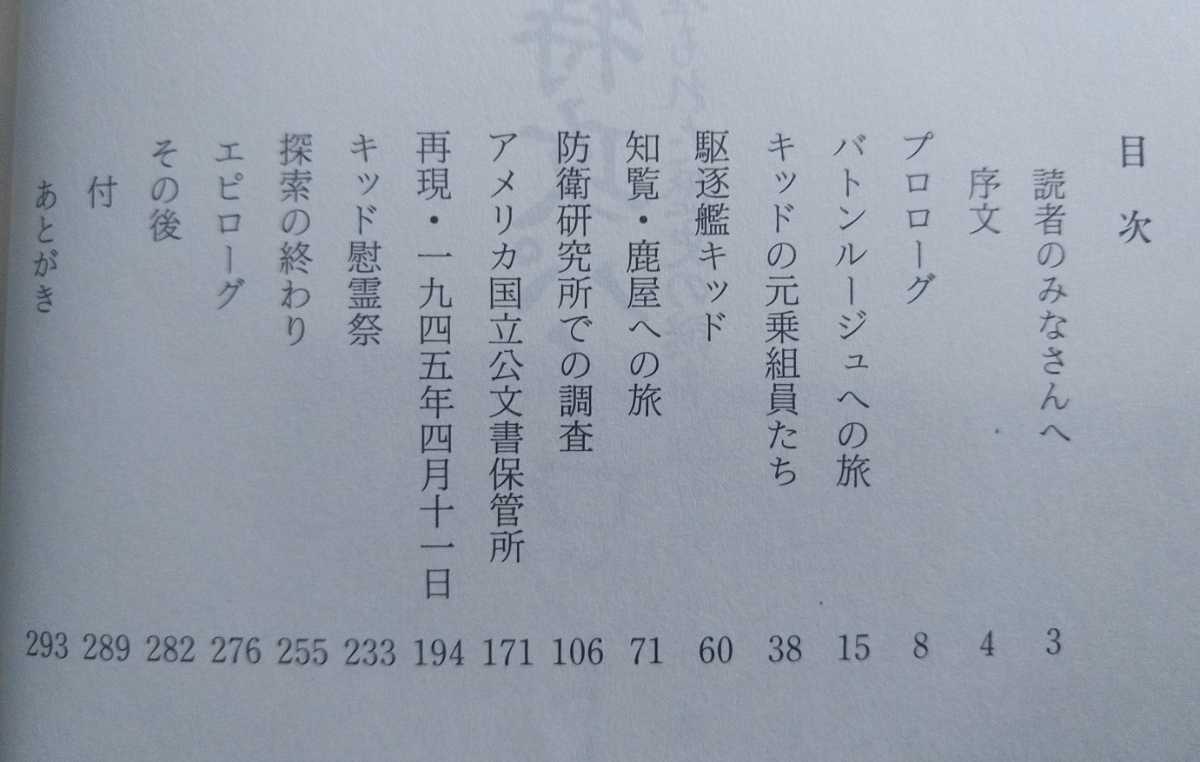 目次
読者のみなさんへ 3
序文 4
プロローグ 8
バトンルージュへの旅 15
キッドの元乗組員たち 38
駆逐艦キッド 60
知覧・鹿屋への旅 71
防衛研究所での調査 106
アメリカ国立公文書保管所 171
再現・一九四五年四月十一日 194
キッド慰霊祭 233
探索の終わり 255
エピローグ 276
その後 282
付 289
あとがき 293